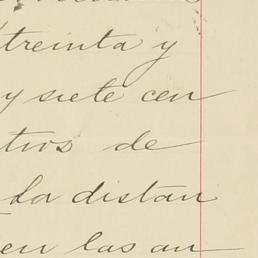 treinta y
y siete cen
tros de
La distan
en las an